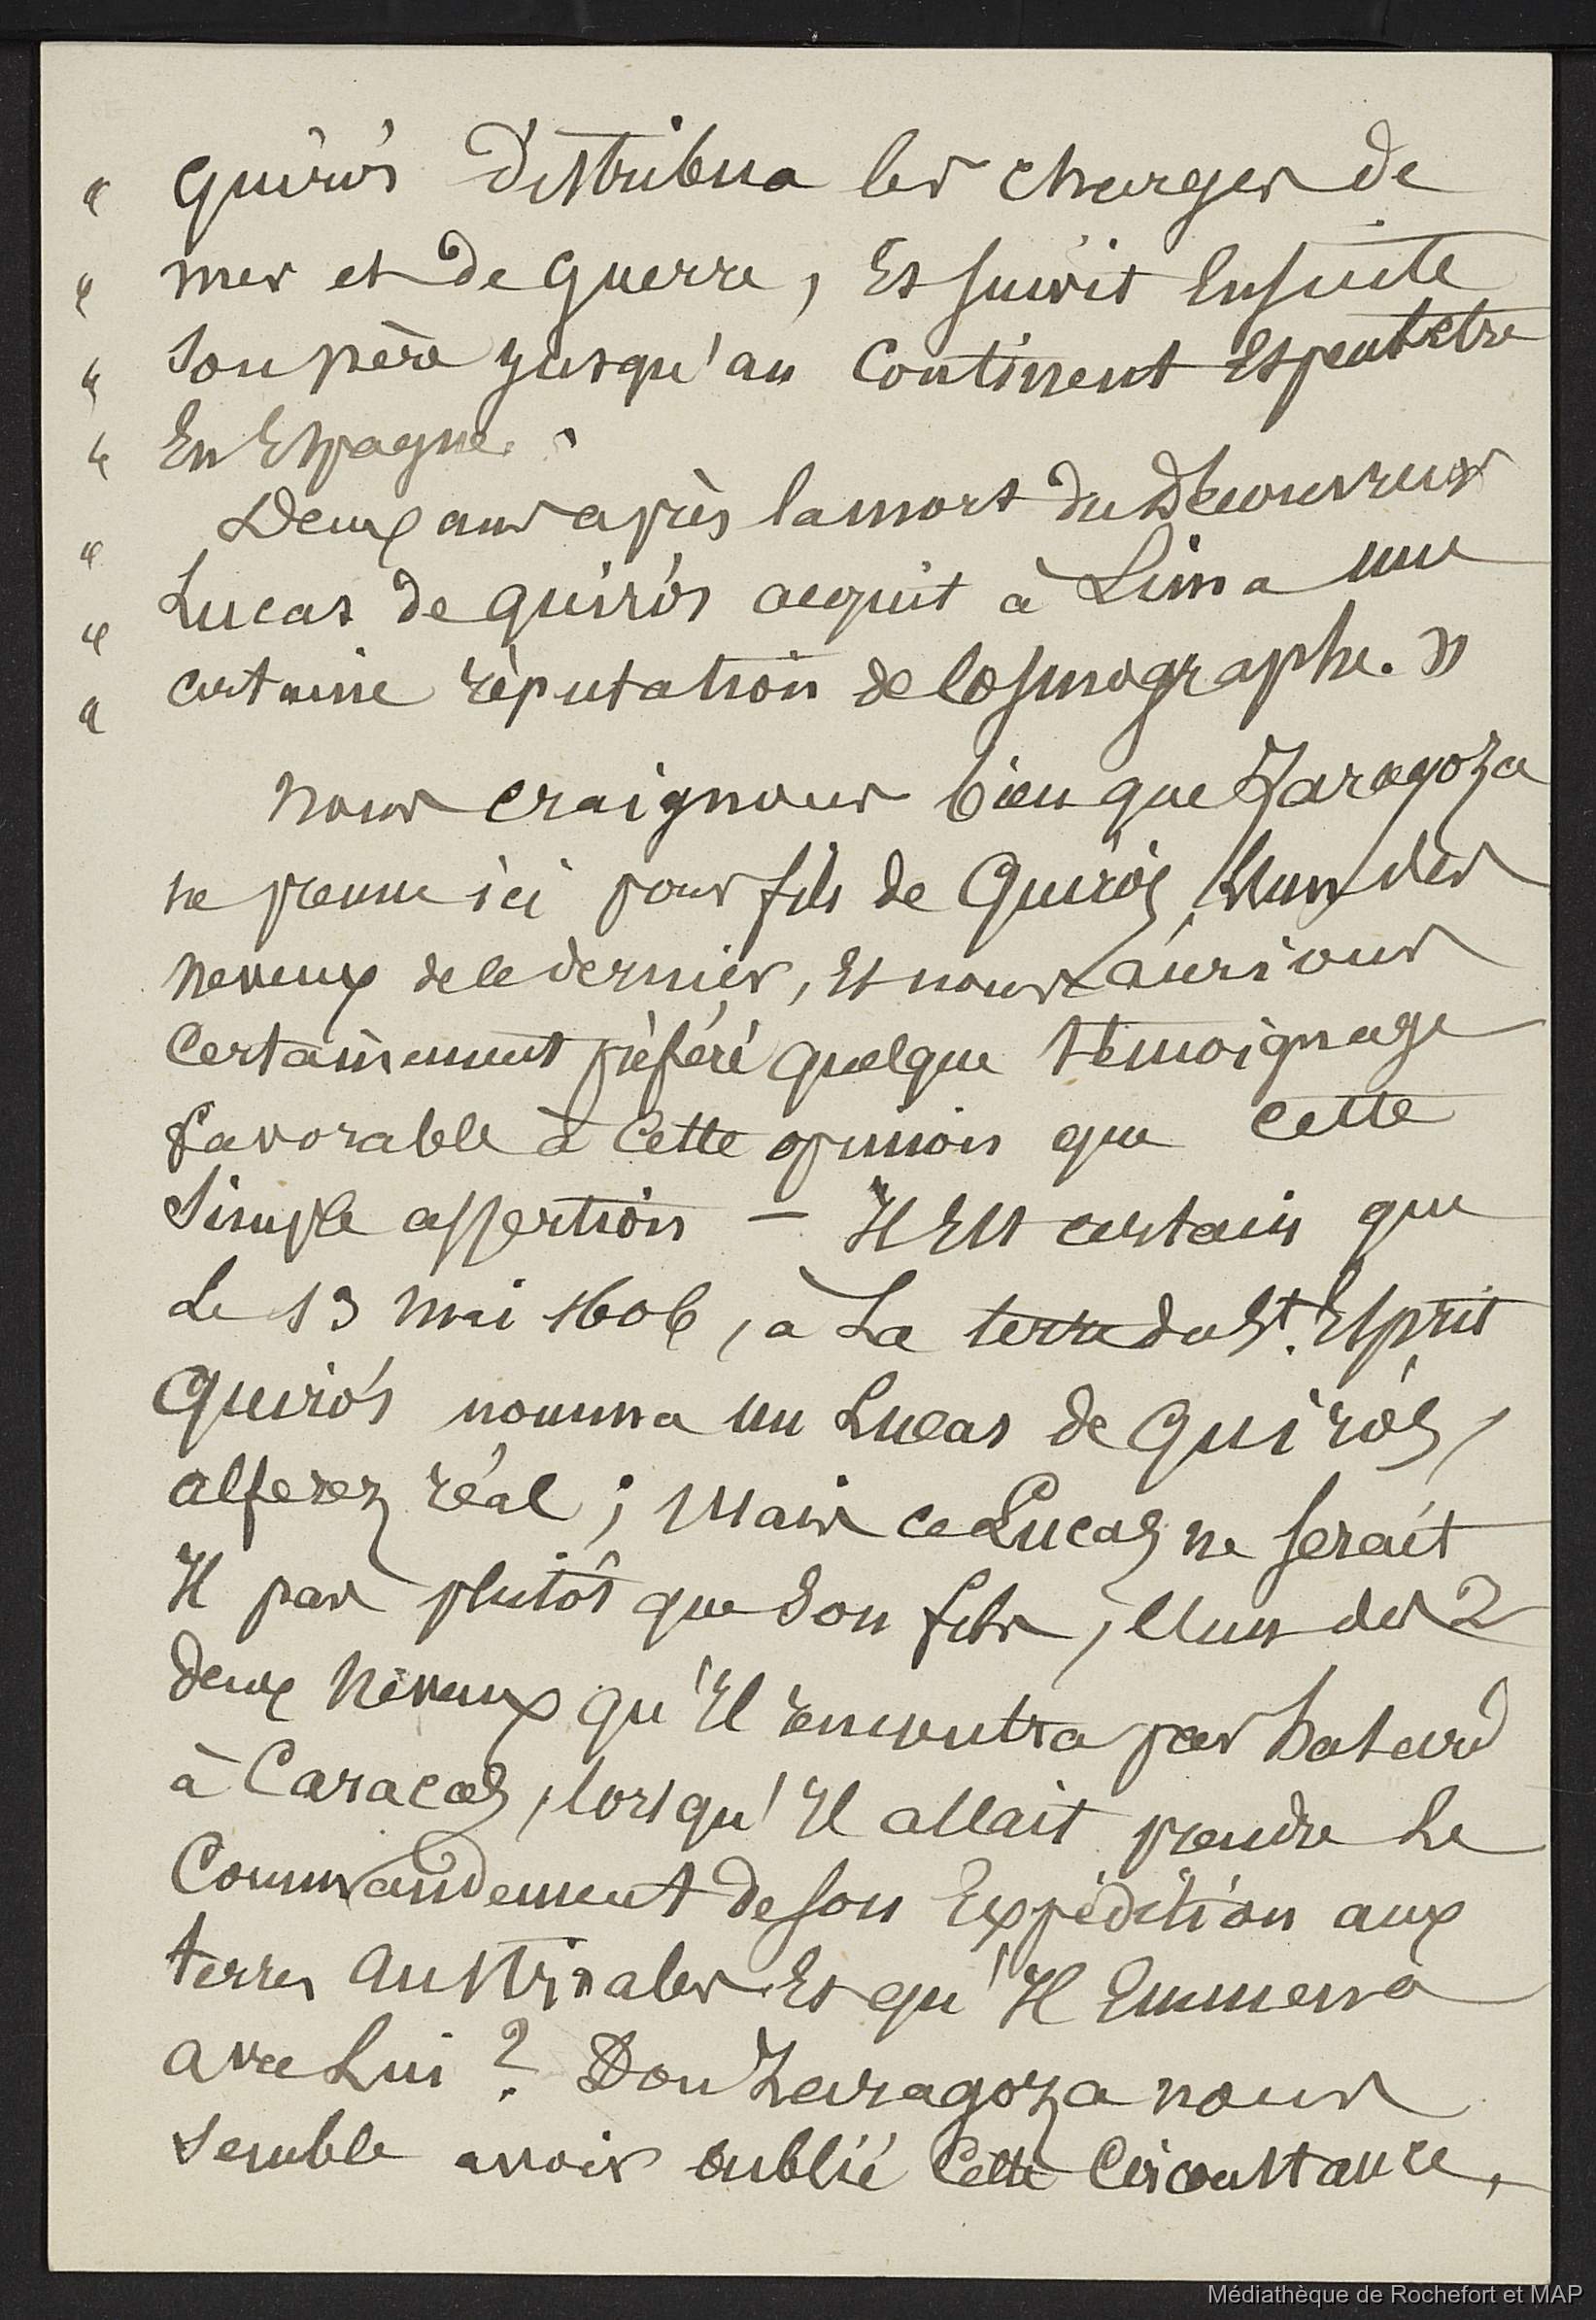 " Quirós distribua les charges de
" mer et de guerre, et suivit ensuite
" son père jusqu'au Continent et peut être
" En Espagne.
" Deux ans après la mort du Découvreur
" Lucas de Quirós acquit à Lima une
" certaine réputation de Cosmographe. »
Nous craignons bien que Zaragoza
ne prenne ici pour fils de Quirós, l'un des
neveux de ce dernier, et nous aurions
Certainement préféré quelque témoignage
favorable à cette opinion que cette
simple assertion — Il Est certain que
Le 13 mai 1606, à La terre du St. Esprit
Quirós nomma un Lucas de Quirós,
alferez réal ; Mais ce Lucas ne serait
Il pas plutôt que son fils, l'un des 2
deux Neveux qu'Il rencontra par hasard
à Caracas, lorsqu'Il allait prendre Le
Commandement de son Expédition aux
terres australes Et qu'Il Emmena
avec Lui ? Don Zaragoza nous
semble avoir oublié Cette Circonstance,
Médiathèque de Rochefort et MAP